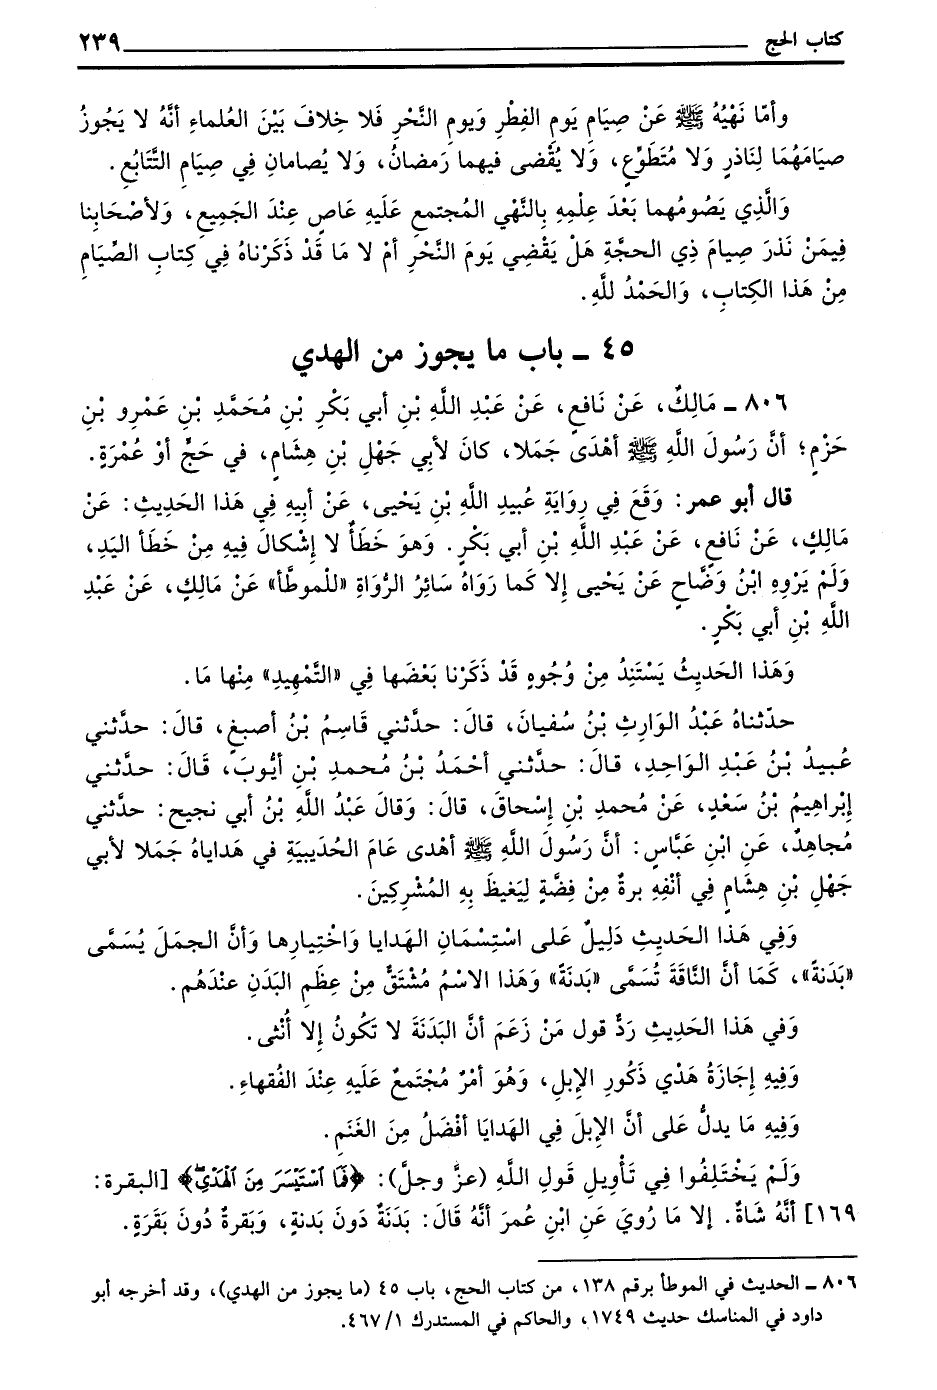 كتاب الحج ٢٣٩
وأمّا نَهْيُهُ ﷺ عَنْ صِيَامِ يَومِ الفِطْرِ وَيومِ النَّحْرِ فَلا خِلافَ بَيْنَ العُلماءِ أنَّهُ لا يَجُوزُ
صيَامَهُمَا لِنَاذرٍ وَلا مُتَطَوِّعٍ، وَلا يُقْضى فيهما رَمضانُ، وَلا يُصامانِ فِي صِيَامِ التَّتَابُعِ.
وَالَّذِي يَصُومُهما بَعْدَ عِلْمِهِ بِالنَّهْيِ المُجتمعِ عَلَيهِ عَاصٍ عِنْدَ الجَميعِ، وَلأصْحَابِنا
فِيمَنْ نَذرَ صِيامَ ذِي الحجَّةِ هَلْ يَقْضِي يَومَ النَّحْرِ أمْ لا مَا قَدْ ذَكَرْناهُ فِي كِتابِ الصِّيَامِ
مِنْ هَذا الكِتابِ، وَالحَمْدُ للَّهِ.
٤٥ ـ باب ما يجوز من الهدي
٨٠٦ ـ مَالِكٌ، عَنْ نَافعٍ، عَنْ عَبْدِ اللَّهِ بْنِ أبي بَكْرِ بْنِ مُحَمَّدِ بْنِ عَمْرِو بْنِ
حَزْمٍ؛ أنَّ رَسُولَ اللَّهِ ﷺ أهْدَى جَمَلا، كانَ لأبِي جَهْلِ بْنِ هِشَامٍ، في حَجٍّ أوْ عُمْرَةٍ.
قال أبو عمر: وَقَعَ فِي رِوَايَةِ عُبيدِ اللَّهِ بْنِ يَحْيى، عَنْ أبِيهِ فِي هَذا الحَدِيثِ: عَنْ
مَالِكٍ، عَنْ نَافعٍ، عَنْ عَبْدِ اللَّهِ بْنِ أبي بَكْرٍ. وَهوَ خَطَأٌ لا إشْكالَ فِيهِ مِنْ خَطَأ اليَدِ،
وَلَمْ يَرْوِهِ ابْنُ وَضَّاحٍ عَنْ يَحْيى إلا كَما رَوَاهُ سَائِرُ الرُّوَاةِ «للْموطَّأ» عَنْ مَالِكٍ، عَنْ عَبْدِ
اللَّهِ بْنِ أبي بَكْرٍ.
وَهَذا الحَديثُ يَسْتَنِدُ مِنْ وُجُوهٍ قَدْ ذَكَرْنا بَعْضَها فِي «التَّمْهِيدِ» مِنْها مَا.
حدّثناهُ عَبْدُ الوَارِثِ بْنُ سُفيانَ، قالَ: حدَّثني قَاسِمُ بْنُ أصبغٍ، قالَ: حدَّثني
عُبيدُ بْنُ عَبْدِ الوَاحِدِ، قالَ: حدَّثني أحْمَدُ بْنُ مُحمدِ بْنِ أيُّوبَ، قَالَ: حدَّثني
إبْراهِيمُ بْنُ سَعْدٍ، عَنْ مُحمدِ بْنِ إسْحاقَ، قالَ: وَقالَ عَبْدُ اللَّهِ بْنُ أبي نجيح: حدَّثني
مُجاهِدٌ، عَنِ ابْنِ عَبَّاسٍ: أنَّ رَسُولَ اللَّهِ ﷺ أهْدى عَامَ الحُدَيبيَةِ في هَداياهُ جَملا لأبي
جَهْلِ بْنِ هِشَامٍ فِي أنْفِهِ برةٌ مِنْ فِضَّةٍ لِيَغيظَ بِهِ المُشْرِكِينَ.
وَفِي هَذا الحَديثِ دَلِيلٌ عَلى اسْتِسْمَانِ الهَدايا وَاخْتِيارِها وَأنَّ الجمَلَ يُسَمَّى
«بَدَنةً»، كَمَا أنَّ النَّاقَةَ تُسَمَّى «بَدنَةً» وَهَذا الاسْمُ مُشْتَقٌّ مِنْ عِظَمِ البَدَنِ عنْدَهُم.
وَفي هَذا الحَدِيثِ رَدُّ قول مَنْ زَعَمَ أنَّ البَدَنَةَ لا تَكُونُ إلا أُنْثى.
وَفِيهِ إجَازَةُ هَدْي ذَكُورِ الإبلِ، وَهُوَ أمْرٌ مُجْتَمعٌ عَلَيهِ عِنْدَ الفُقهاءِ.
وَفِيهِ مَا يدلُّ عَلى أنَّ الإبلَ فِي الهَدايَا أفْضَلُ مِنَ الغَنَمِ.
وَلَمْ يَخْتَلِفُوا فِي تَأْويلِ قَولِ اللَّهِ (عزَّ وجلَّ): ﴿فَمَا ٱسْتَيْسَرَ مِنَ ٱلْهَدْيِ﴾ [البقرة:
١٦٩] أنَّهُ شَاةٌ. إلا مَا رُويَ عَنِ ابْنِ عُمرَ أنَّهُ قَالَ: بَدَنَةٌ دَونَ بَدنةٍ، وَبَقرةٌ دُونَ بَقَرَةٍ.
٨٠٦ ـ الحديث في الموطأ برقم ١٣٨، من كتاب الحج، باب ٤٥ (ما يجوز من الهدي)، وقد أخرجه أبو
داود في المناسك حديث ١٧٤٩، والحاكم في المستدرك ٤٦٧/١.